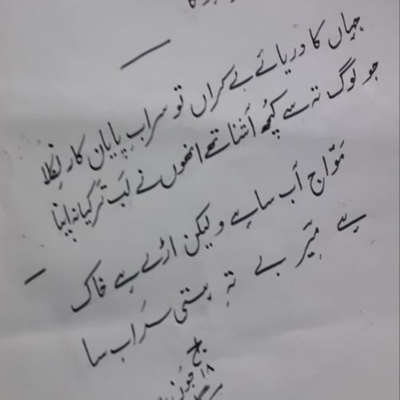 جہاں کا دریائے بے کراں تو سرابِ پایانِ کار نکلا
جو لوگ تہ سے کچھ آشنا تھے انھوں نے لب تر کیا نہ اپنا
موّاج آب سا ہے ولیکن اڑے ہے خاک
ہے میرؔ بحرِ بے تہِ ہستی سراب سا
۱۸ جون